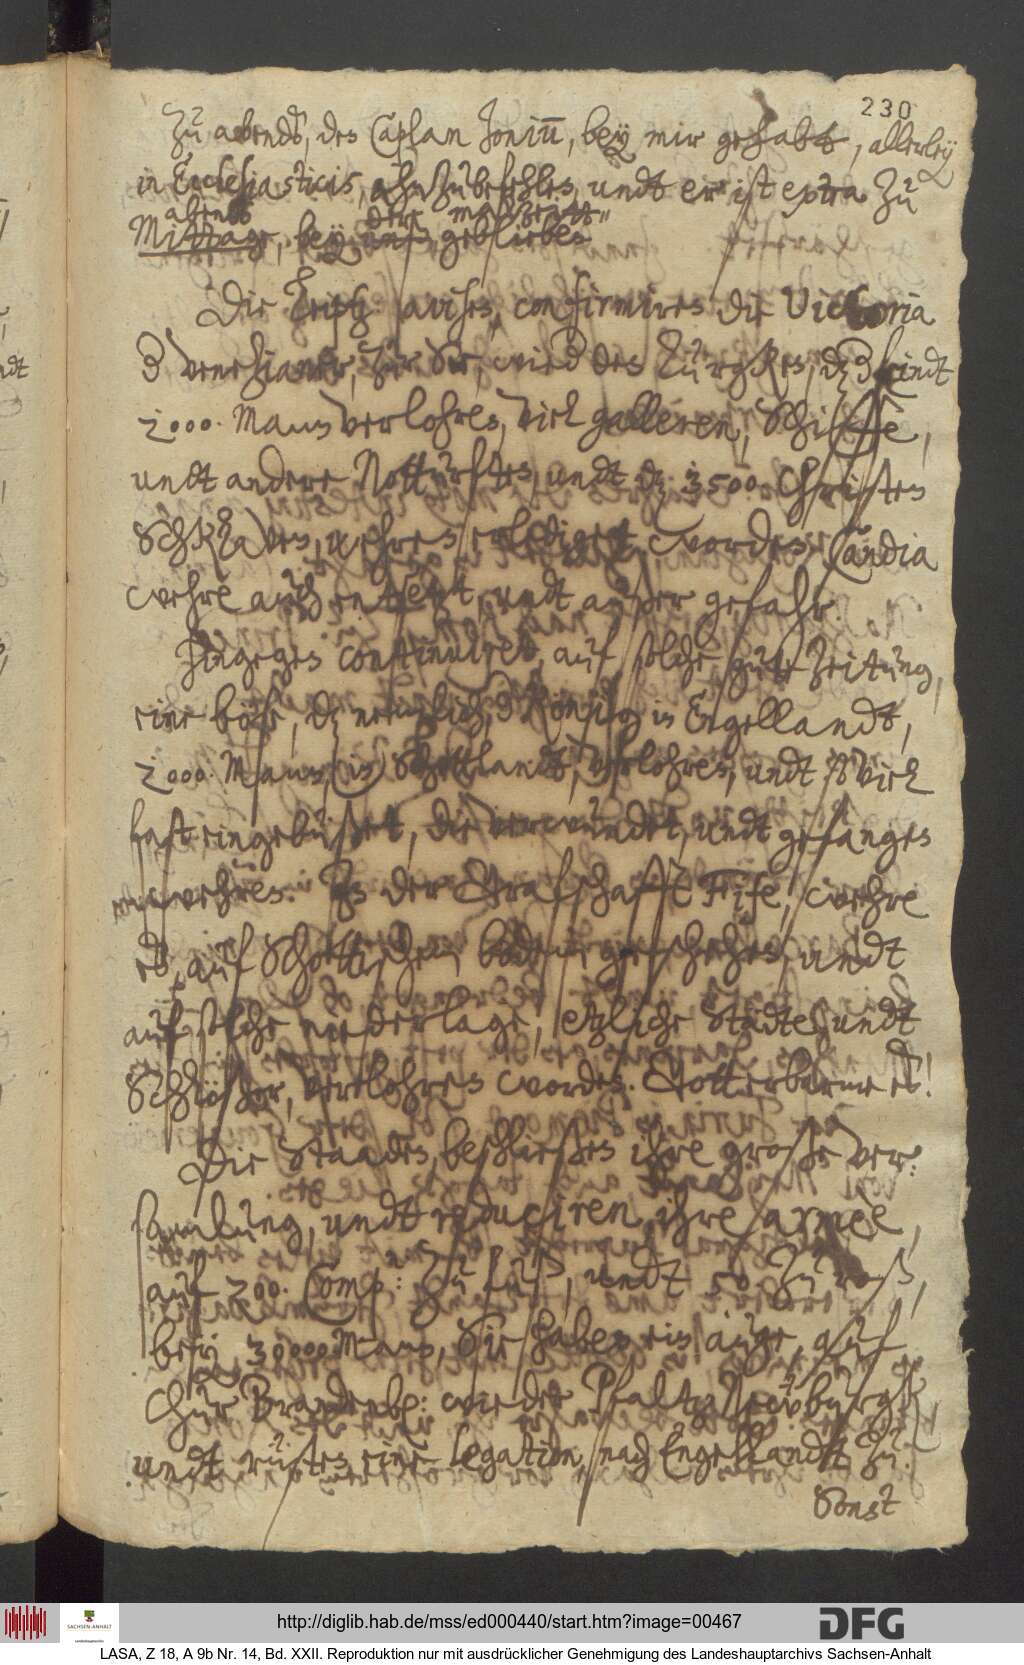 230
Zu abends, den Caplan Jonium, bey mir gehabt, allerley
in Ecclesiasticis, anzubefehlen, undt er ist extra zu
abends der mahlzeitt
Mittage, bey uns geblieben
Die Leiptz: avisen, confirmiren die Victoria
der Venezianer, zur See, wieder den Türgken, daß der feindt
2000 Mann verlohren, viel galleren, Schiffe,
undt andere Notturften, undt daß 3500 Christen
Schklaven, wehren erlediget worden. Candia
wehre auch entsetzt, undt außer gefahr.
Hingegen continuiret, auf solche gute zeitung,
eine böse, daß nemlich, der König in Engellandt,
2000 Mann, (in) Schottlandt, verlohren, undt so viel
fast eingebüßet, die verwundet, undt gefangen
wehren. In der Grafschafft Fife, wehre
es, auf Schottischem bodem geschehen, undt
auf solche niederlage, etzliche Städte, undt
Schlößer, verlohren worden. Gott erbarme es!
Die Staaden, beschließen ihre große ver-
samlung, undt reduciren ihre armèe,
auf 200 Comp: zu fuß, undt 50 zu roß,
bey 30000 Mann, Sie haben ein auge, auf
Chur Brandenb: wieder Pfaltz Neuburgk,
undt rüsten eine legation nach Engellandt zu.
Sonst
http://diglib.hab.de/mss/ed000440/start.htm?image=00467
DFG
SACHSEN-ANHALT
LASA, Z 18, A 9b Nr. 14, Bd. XXII. Reproduktion nur mit ausdrücklicher Genehmigung des Landeshauptarchivs Sachsen-Anhalt